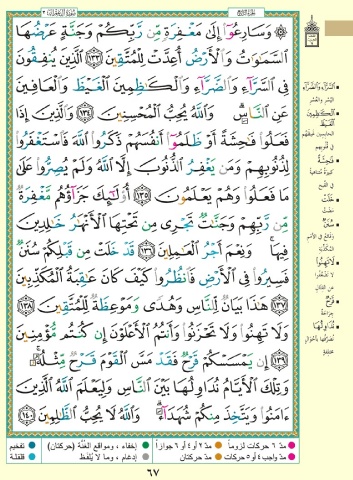 ۞ وَسَارِعُوٓا۟ إِلَىٰ مَغْفِرَةٍ مِّن رَّبِّكُمْ وَجَنَّةٍ عَرْضُهَا
ٱلسَّمَـٰوَٰتُ وَٱلْأَرْضُ أُعِدَّتْ لِلْمُتَّقِينَ ١٣٣ ٱلَّذِينَ يُنفِقُونَ
فِى ٱلسَّرَّآءِ وَٱلضَّرَّآءِ وَٱلْكَـٰظِمِينَ ٱلْغَيْظَ وَٱلْعَافِينَ
عَنِ ٱلنَّاسِ ۗ وَٱللَّهُ يُحِبُّ ٱلْمُحْسِنِينَ ١٣٤ وَٱلَّذِينَ إِذَا
فَعَلُوا۟ فَـٰحِشَةً أَوْ ظَلَمُوٓا۟ أَنفُسَهُمْ ذَكَرُوا۟ ٱللَّهَ فَٱسْتَغْفَرُوا۟
لِذُنُوبِهِمْ وَمَن يَغْفِرُ ٱلذُّنُوبَ إِلَّا ٱللَّهُ وَلَمْ يُصِرُّوا۟ عَلَىٰ
مَا فَعَلُوا۟ وَهُمْ يَعْلَمُونَ ١٣٥ أُو۟لَـٰٓئِكَ جَزَآؤُهُم مَّغْفِرَةٌ
مِّن رَّبِّهِمْ وَجَنَّـٰتٌ تَجْرِى مِن تَحْتِهَا ٱلْأَنْهَـٰرُ خَـٰلِدِينَ
فِيهَا ۚ وَنِعْمَ أَجْرُ ٱلْعَـٰمِلِينَ ١٣٦ قَدْ خَلَتْ مِن قَبْلِكُمْ سُنَنٌ
فَسِيرُوا۟ فِى ٱلْأَرْضِ فَٱنظُرُوا۟ كَيْفَ كَانَ عَـٰقِبَةُ ٱلْمُكَذِّبِينَ
١٣٧ هَـٰذَا بَيَانٌ لِّلنَّاسِ وَهُدًى وَمَوْعِظَةٌ لِّلْمُتَّقِينَ ١٣٨
وَلَا تَهِنُوا۟ وَلَا تَحْزَنُوا۟ وَأَنتُمُ ٱلْأَعْلَوْنَ إِن كُنتُم مُّؤْمِنِينَ
١٣٩ إِن يَمْسَسْكُمْ قَرْحٌ فَقَدْ مَسَّ ٱلْقَوْمَ قَرْحٌ مِّثْلُهُۥ ۚ
وَتِلْكَ ٱلْأَيَّامُ نُدَاوِلُهَا بَيْنَ ٱلنَّاسِ وَلِيَعْلَمَ ٱللَّهُ ٱلَّذِينَ
ءَامَنُوا۟ وَيَتَّخِذَ مِنكُمْ شُهَدَآءَ ۗ وَٱللَّهُ لَا يُحِبُّ ٱلظَّـٰلِمِينَ ١٤٠
السَّرَّاء وَالضَّرَّاء
اليُسْر والعُسْر
الكَاظِمِينَ الغَيْظَ
الحابسين غيظَهم
في قلوبهم
فَاحِشَةً
كبيرةً متناهيةً
في القُبح
خَلَتْ
مَضَتْ
لَا تَهِنُوا
لا تَضْعُفُوا
عن القتال
قَرْحٌ
جراحة
نُدَاوِلُهَا
نُصَرِّفُها بأحوالٍ
مختلفةٍ
مدّ ٦ حركات لزوماً
مدّ ٢ أو ٤ أو ٦ جوازاً
إخفاء، ومواقع الغُنَّة (حركتان)
تفخيم
مدّ واجب ٤ أو ٥ حركات
مدّ حركتان
إدغام، وما لا يُلفَظ
قلقلة
٦٧